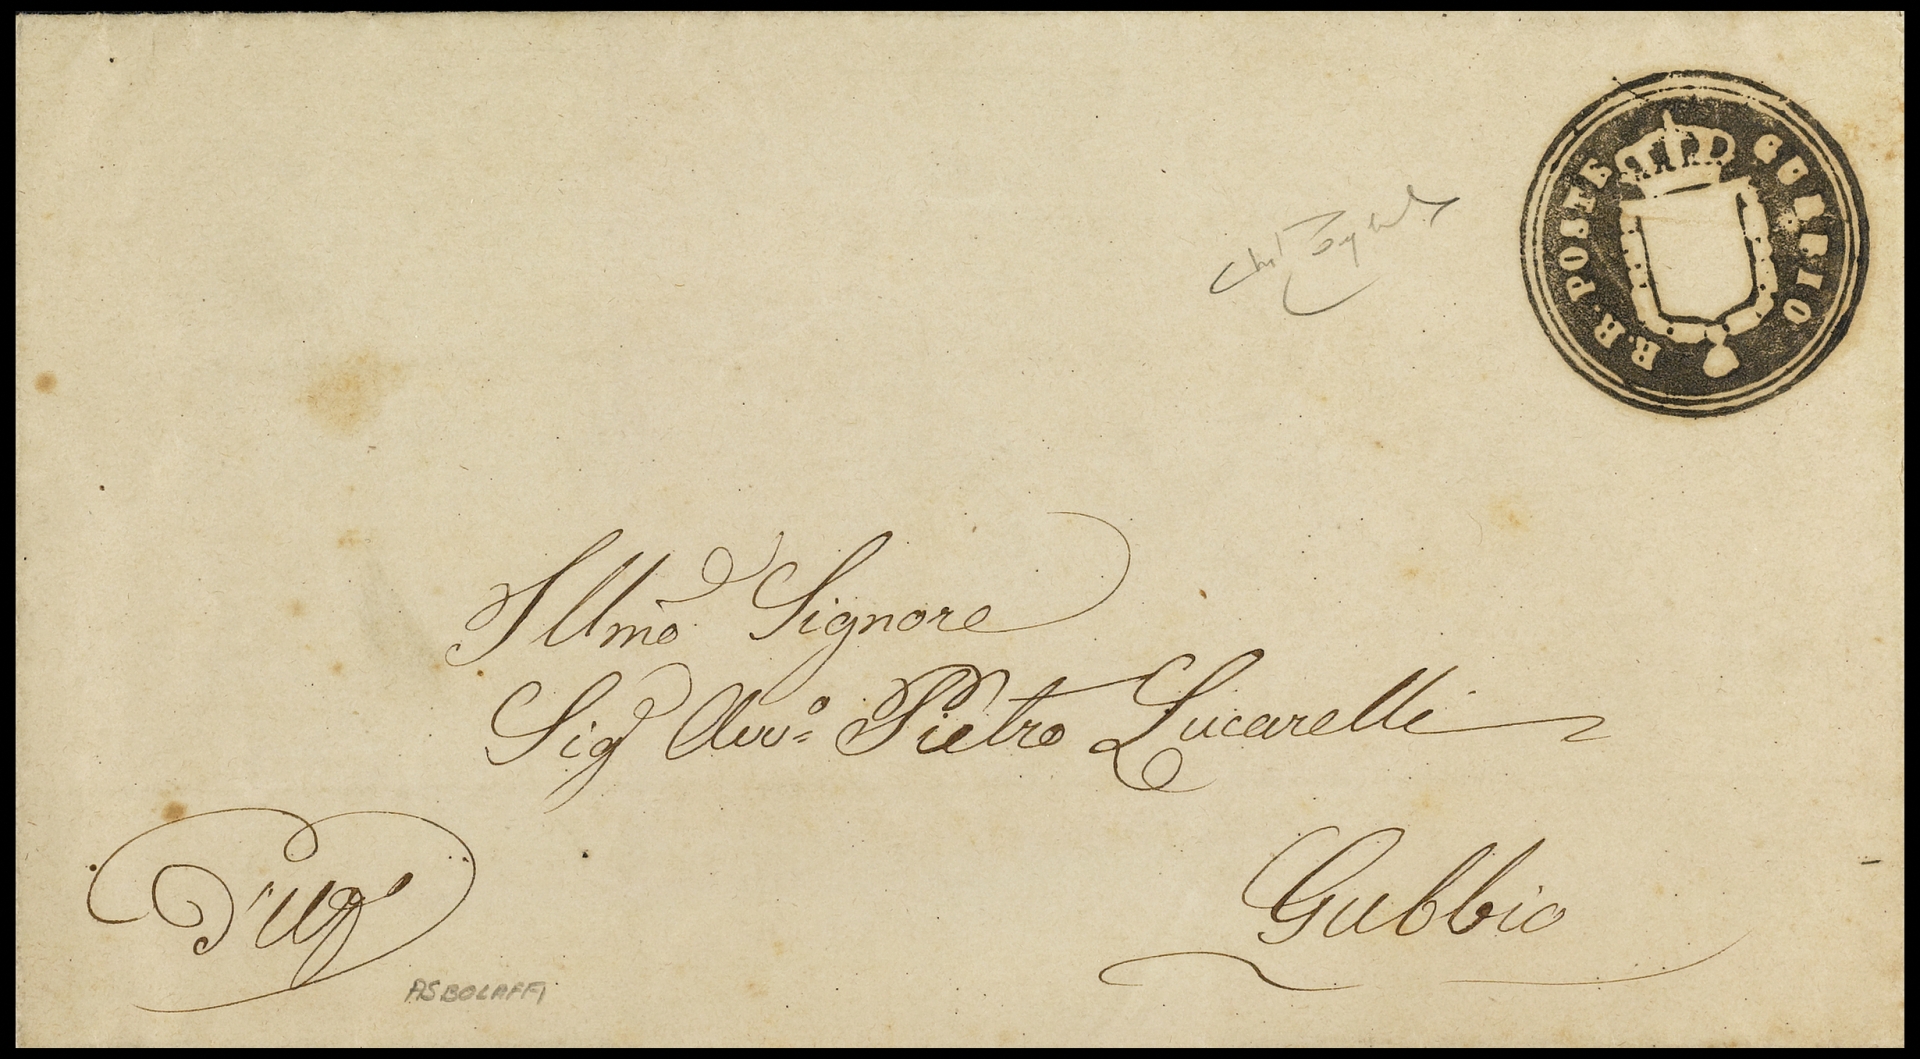 R. R. POSTE GUBBIO
Illmo Signore
Sigr Avvo Pietro Lucarelli
Gubbio
D'uffo
ASBOLAFFI